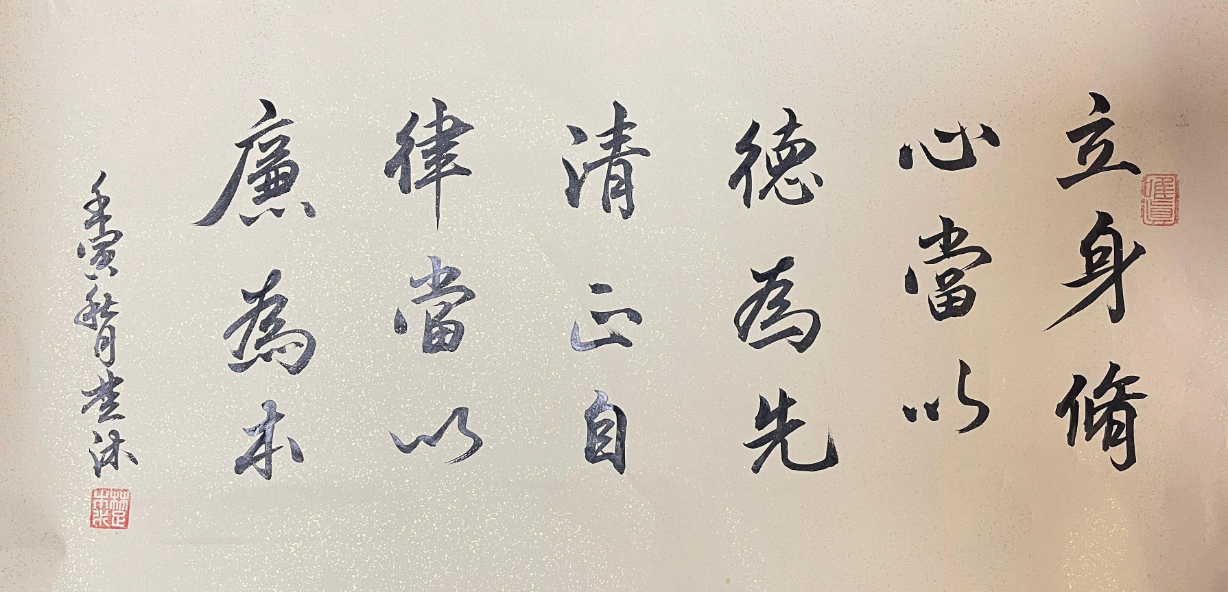 立身脩
心當以
德為先
清正自
律當以
廉為本
壬寅秋月楚沐